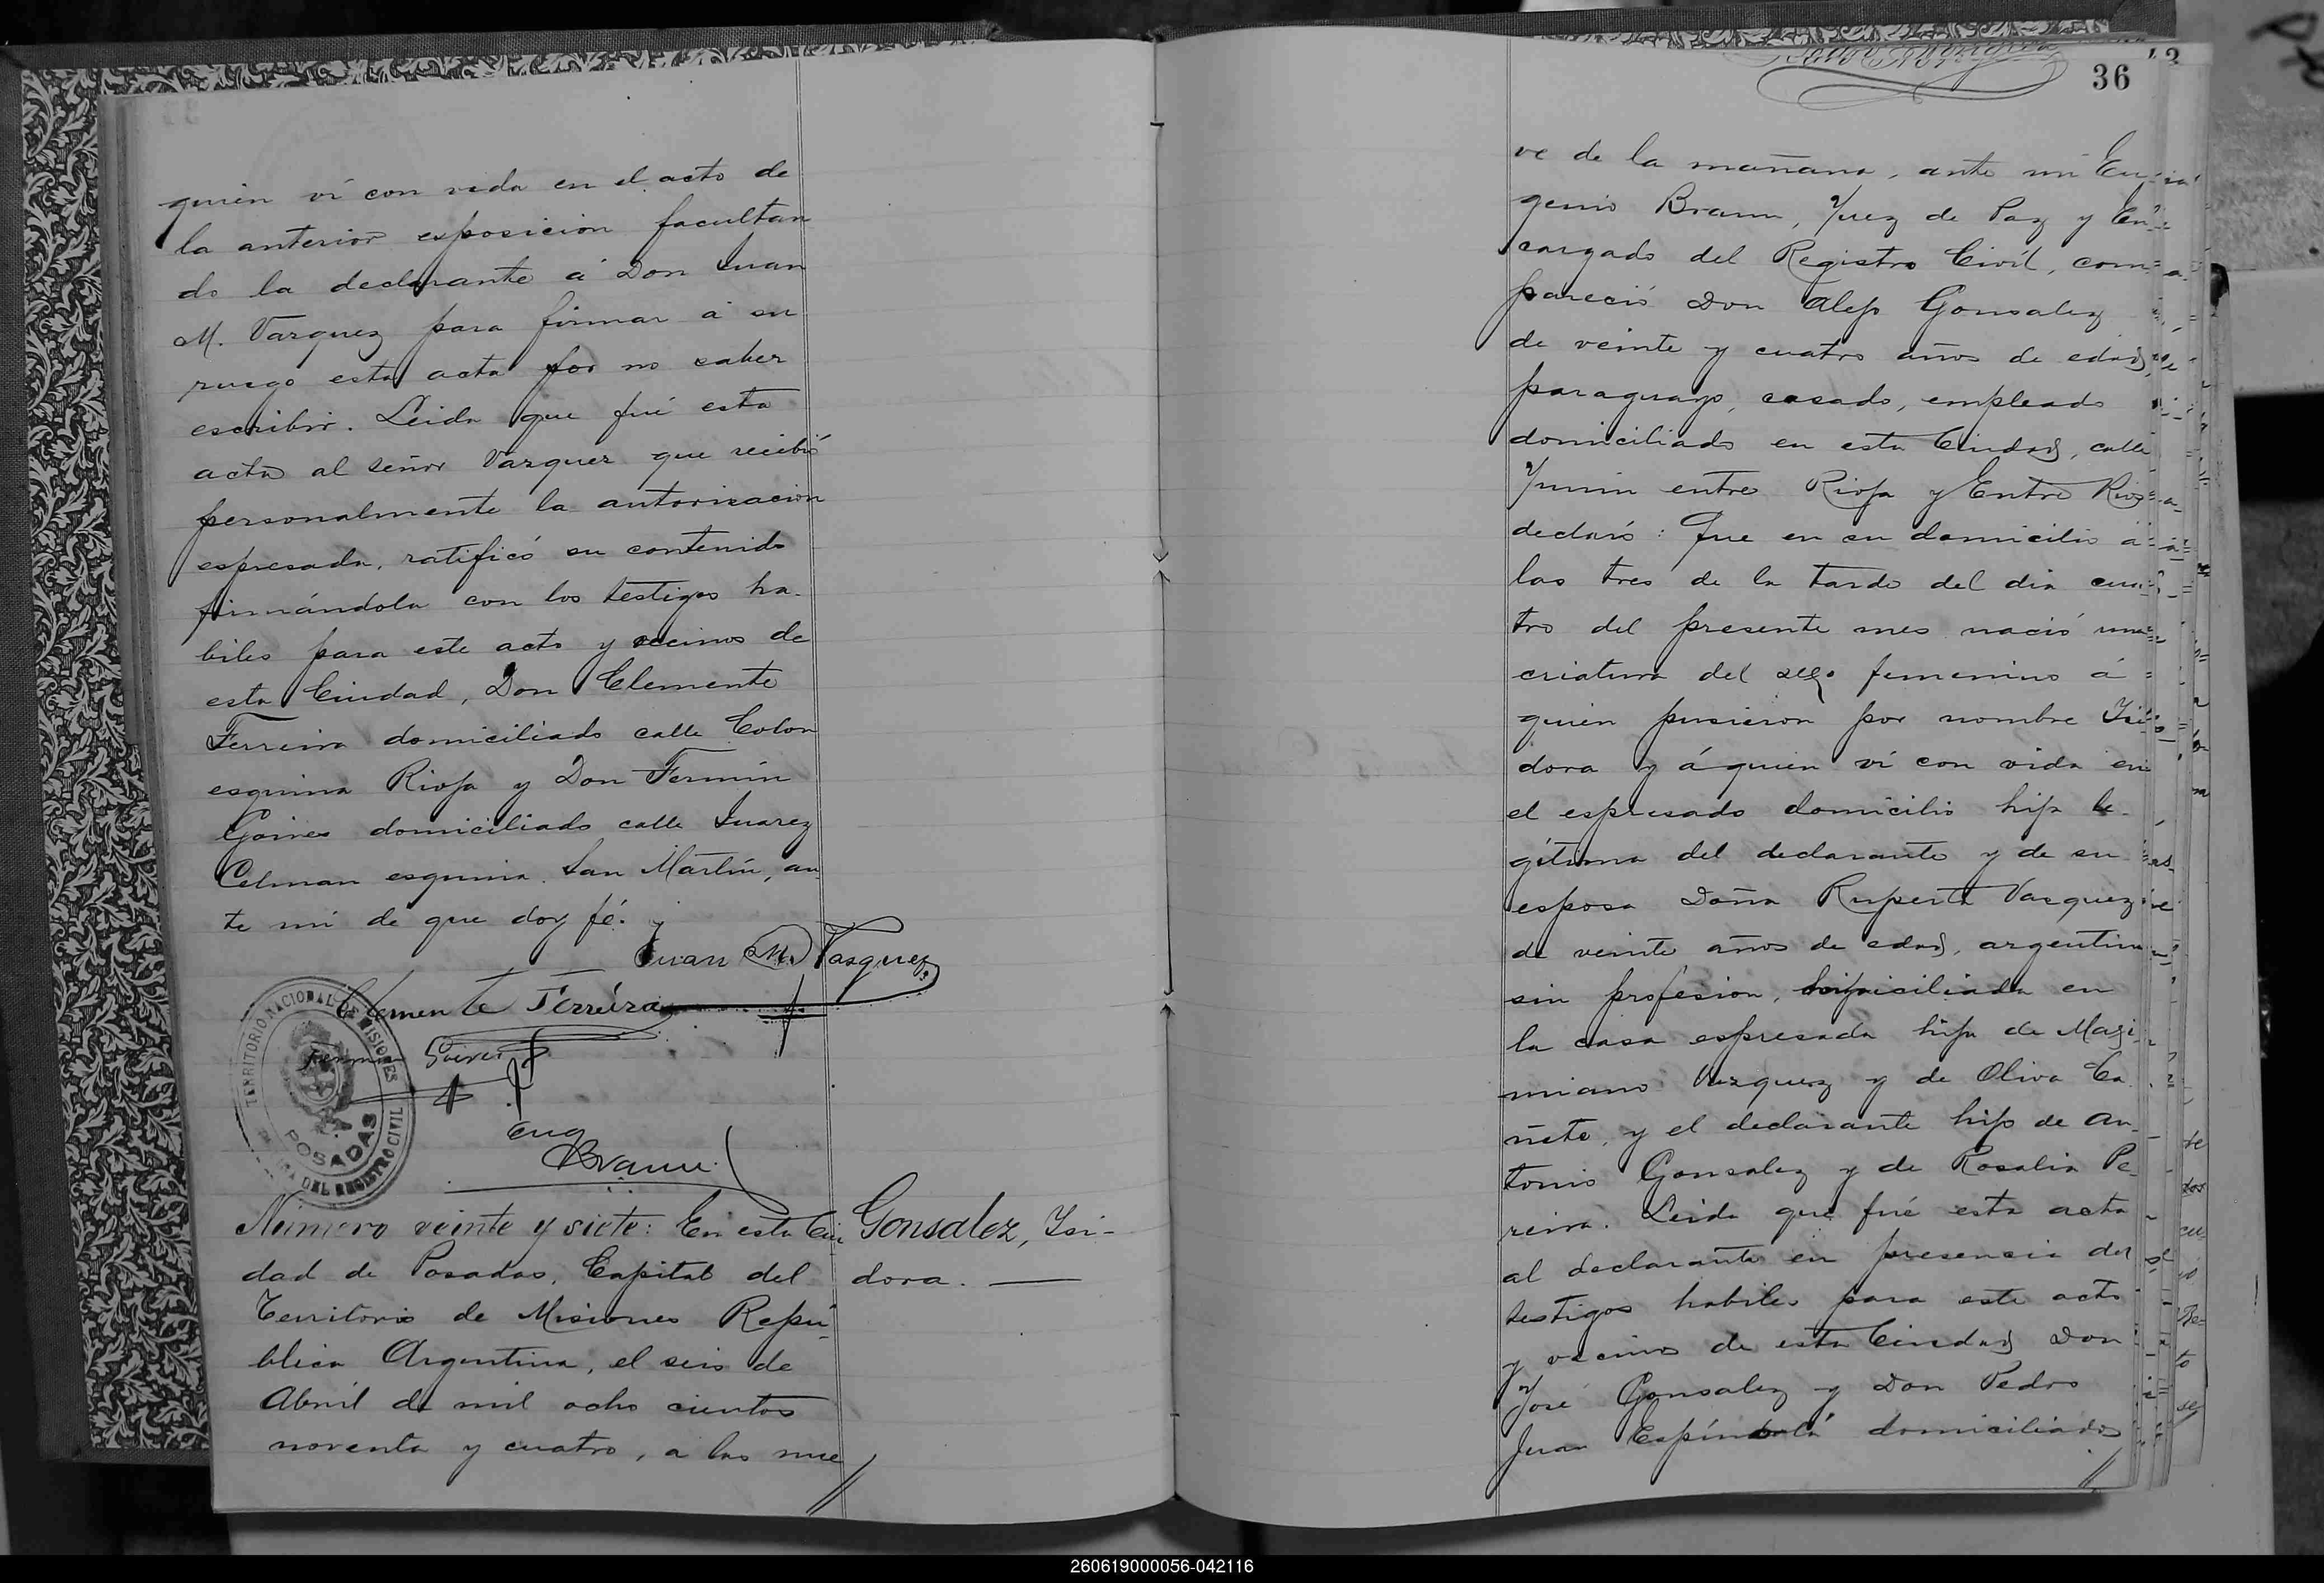 quien ví con vida en el acto de
la anterior esposicion facultan
do la declarante á Don Juan
M. Vazquez para firmar á su
ruego esta acta por no saber
escribir. Leida que fué esta
acta al señor Vazquez que recibió
personalmente la autorizacion
espresada, ratificó su contenido
firmándola con los testigos ha-
biles para este acto y vecinos de
esta Ciudad, Don Clemente
Ferreira domiciliado calle Colon
esquina Rioja y Don Fermin
Goires domiciliado calle Juarez
Celman esquina San Martin, an
te mí de que doy fé.
Juan M. Vasquez
Clemente Ferréira
Fermin Goires
Eug
Braun
TERRITORIO NACIONAL DE MISIONES
POSADAS
DEL REGISTRO CIVIL
Número veinte y siete: En esta Ciu
dad de Posadas, Capital del
Territorio de Misiones Repú-
blica Argentina, el seis de
Abril de mil ocho cientos
noventa y cuatro, a las nue
Gonsalez, Isi-
dora.
36
ve de la mañana, ante mí Eu-
genio Braun, Juez de Paz y En-
cargado del Registro Civil, com-
pareció Don Alejo Gonsalez
de veinte y cuatro años de edad,
paraguayo, casado, empleado
domiciliado en esta Ciudad, calle
Junin entre Rioja y Entre Rios
declaró: Que en su domicilio á
las tres de la tarde del dia cua-
tro del presente mes nació una
criatura del sexo femenino á
quien pusieron por nombre Isi-
dora y á quien ví con vida en
el espresado domicilio hija le-
gítima del declarante y de su
esposa Doña Ruperta Vasquez
de veinte años de edad, argentina
sin profesion, domiciliada en
la casa espresada hija de Maxi-
miano Vazquez y de Oliva Ca
ñete, y el declarante hijo de An-
tonio Gonsalez y de Rosalia Pe-
reira. Leida que fué esta acta
al declarante en presencia del
testigos habiles para este acto
y vecinos de esta Ciudad Don
José Gonsalez y Don Pedro
Juan Espíndola domiciliados
260619000056-042116